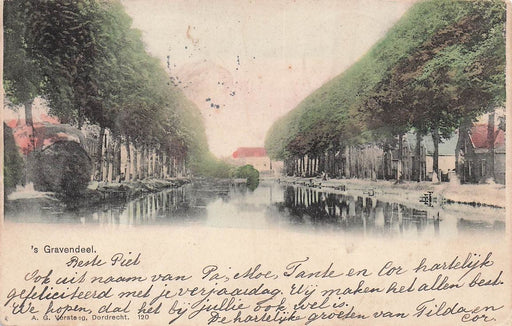 's Gravendeel.
Beste Piet
Ook uit naam van Pa, Moe, Tante en Cor hartelijk
gefeliciteerd met je verjaardag. Wij maken het allen best.
We hopen, dat het bij jullie ook wel is.
De hartelijke groeten van Tilda en
Cor.
A. G. Versteeg, Dordrecht. 120